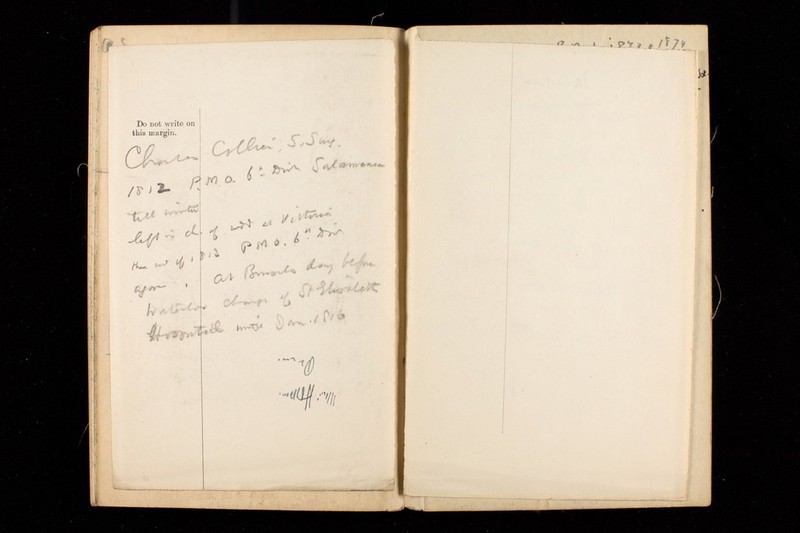 Do not write on
this margin.
Charles Collier, S. Surg.
1812 P.M.O. 6th Divn Salamanca
till winter
left in ch. of wdd at Vittoria
then end of 1813 P.M.O. 6th Div
again. At Brussels day before
Waterloo charge of St Elizabeth
Hospital until Jan. 1816
1873 & 1874